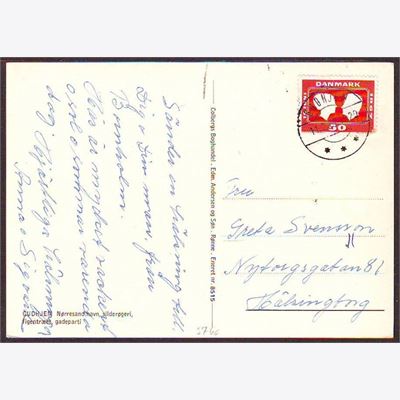 Sänder en hälsning till
Dig o Din man, från
Bornholm.
Här är mycket vackert
o sol o sommar varenda
dag. Hjärtliga hälsningar
Anna o Signe
GUDHJEM Nørresand havn, silderøgeri,
Figentræet, gadeparti
Colbergs Boghandel . Eden. Andersen og Søn . Rønne . Eneret nr. 8515
DANMARK
50
Fru
Greta Svensson
Nytorgsgatan 81
Hälsingborg